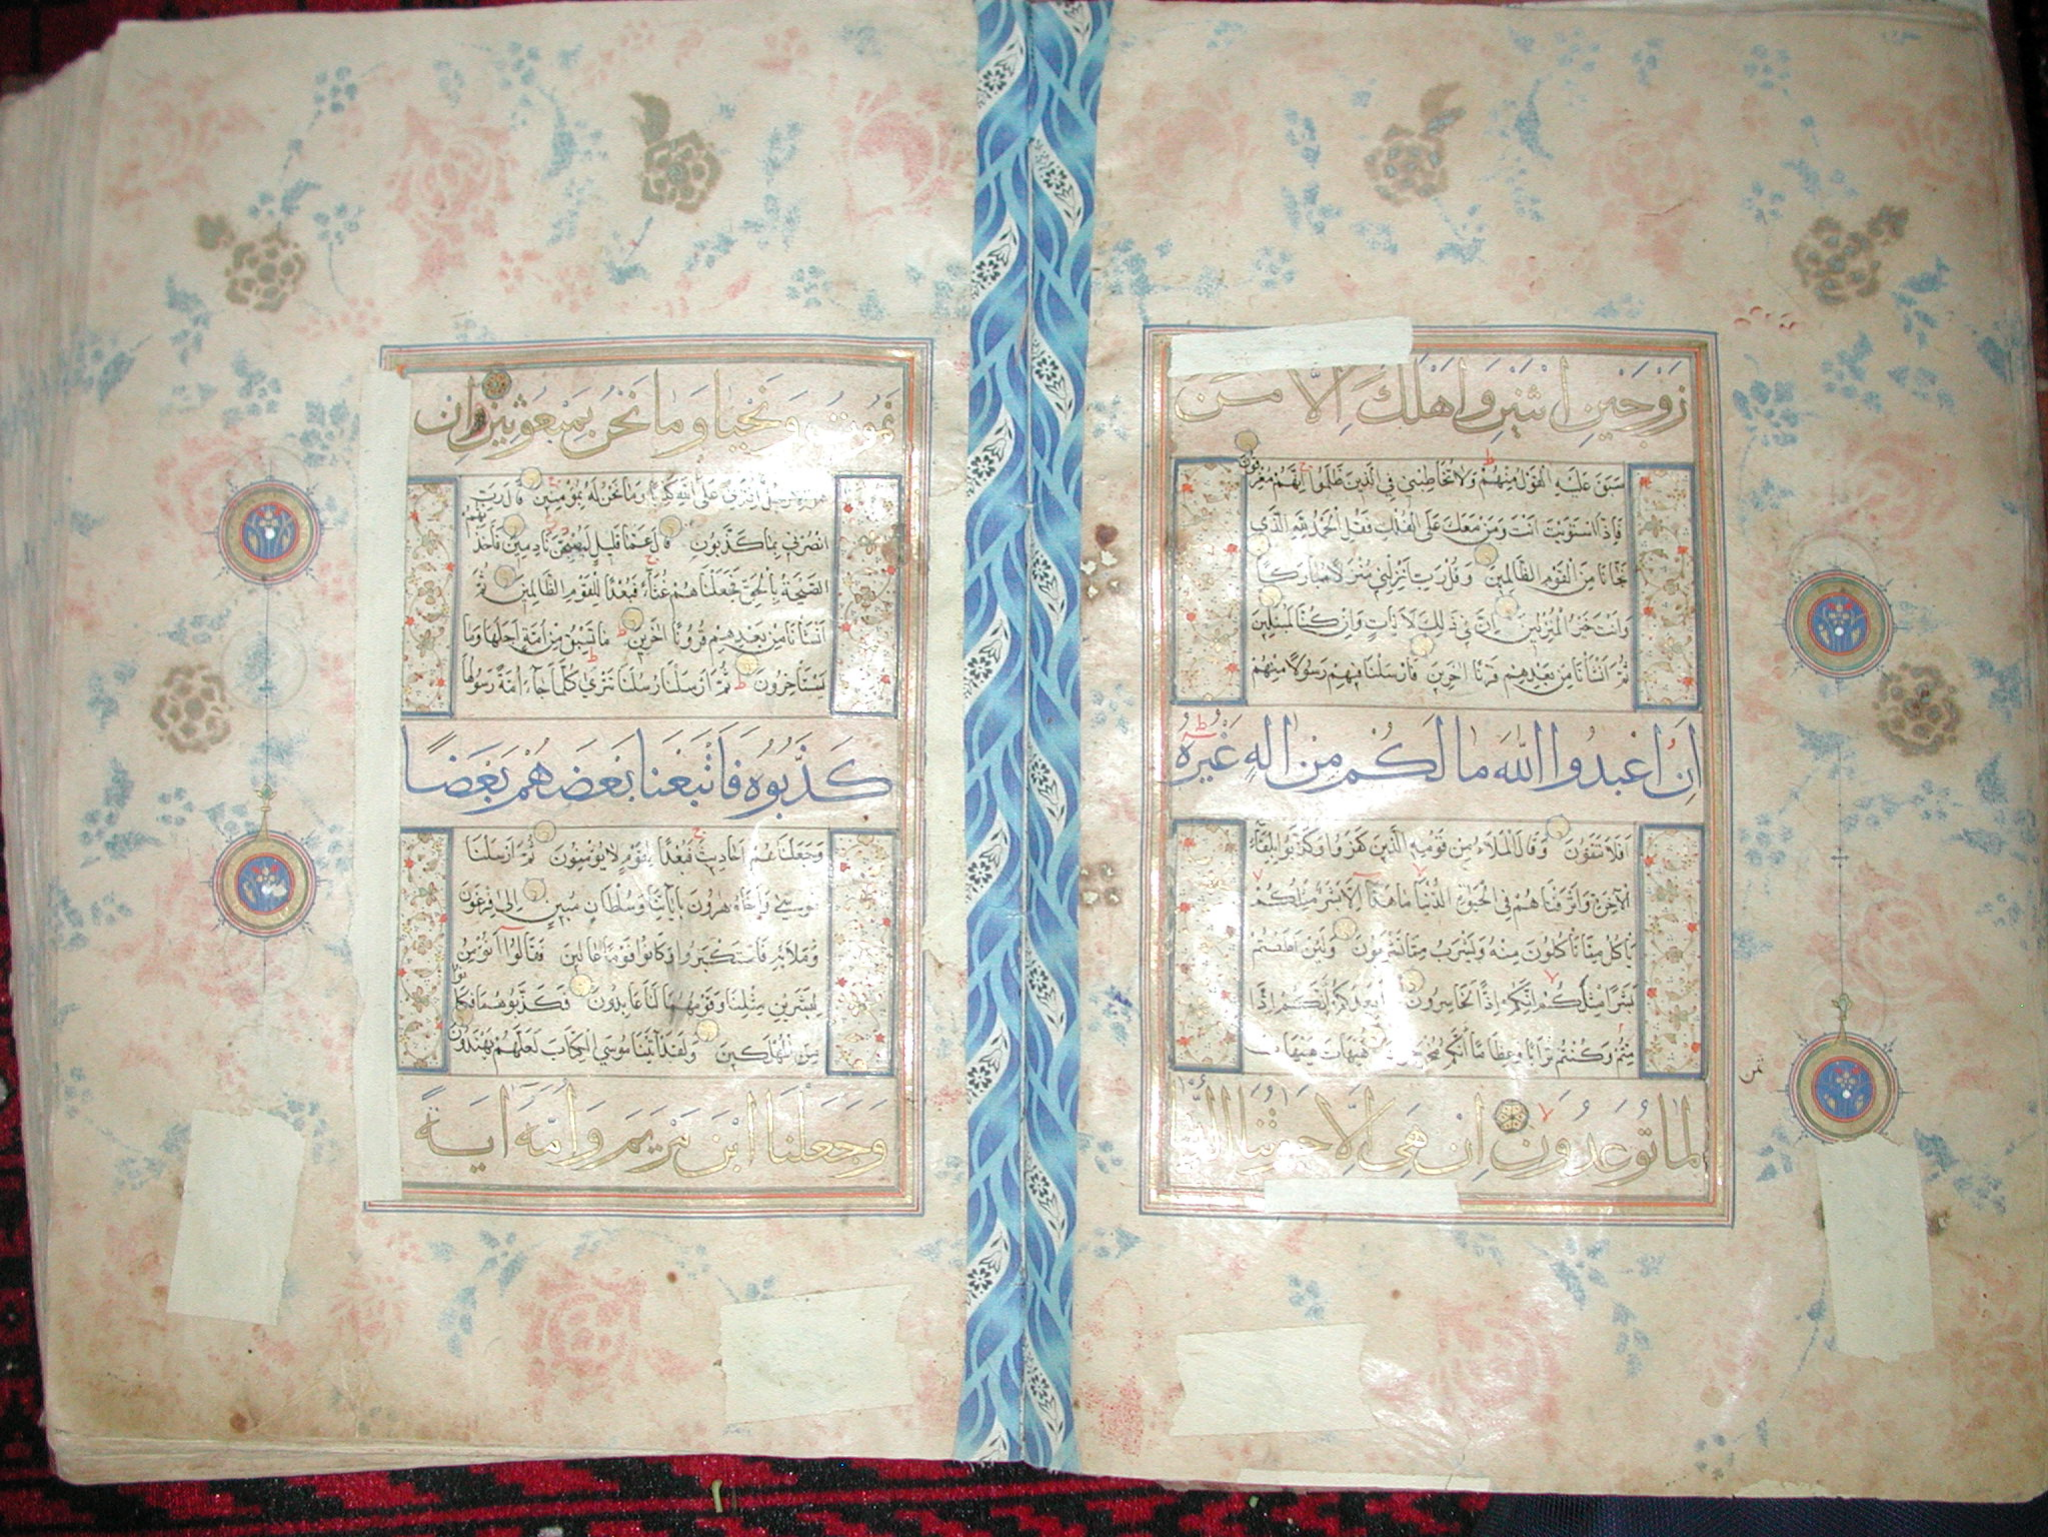 زَوْجَيْنِ اثْنَيْنِ وَاَهْلَكَ اِلَّا مَنْ
سَبَقَ عَلَيْهِ الْقَوْلُ مِنْهُمْ وَلَا تُخَاطِبْنِي فِي الَّذِينَ ظَلَمُوا اِنَّهُمْ مُغْرَقُونَ
فَاِذَا اسْتَوَيْتَ اَنْتَ وَمَنْ مَعَكَ عَلَى الْفُلْكِ فَقُلِ الْحَمْدُ لِلّٰهِ الَّذِي
نَجَّانَا مِنَ الْقَوْمِ الظَّالِمِينَ وَقُلْ رَبِّ اَنْزِلْنِي مُنْزَلًا مُبَارَكًا
وَاَنْتَ خَيْرُ الْمُنْزِلِينَ اِنَّ فِي ذٰلِكَ لَاٰيَاتٍ وَاِنْ كُنَّا لَمُبْتَلِينَ
ثُمَّ اَنْشَاْنَا مِنْ بَعْدِهِمْ قَرْنًا اٰخَرِينَ فَاَرْسَلْنَا فِيهِمْ رَسُولًا مِنْهُمْ
اَنِ اعْبُدُوا اللّٰهَ مَا لَكُمْ مِنْ اِلٰهٍ غَيْرُهُ
اَفَلَا تَتَّقُونَ وَقَالَ الْمَلَاُ مِنْ قَوْمِهِ الَّذِينَ كَفَرُوا وَكَذَّبُوا بِلِقَاءِ
الْاٰخِرَةِ وَاَتْرَفْنَاهُمْ فِي الْحَيٰوةِ الدُّنْيَا مَا هٰذَا اِلَّا بَشَرٌ مِثْلُكُمْ
يَاْكُلُ مِمَّا تَاْكُلُونَ مِنْهُ وَيَشْرَبُ مِمَّا تَشْرَبُونَ وَلَئِنْ اَطَعْتُمْ
بَشَرًا مِثْلَكُمْ اِنَّكُمْ اِذًا لَخَاسِرُونَ اَيَعِدُكُمْ اَنَّكُمْ اِذَا
مِتُّمْ وَكُنْتُمْ تُرَابًا وَعِظَامًا اَنَّكُمْ مُخْرَجُونَ هَيْهَاتَ هَيْهَاتَ
ثمن
لِمَا تُوعَدُونَ اِنْ هِيَ اِلَّا حَيَاتُنَا الدُّنْيَا
نَمُوتُ وَنَحْيَا وَمَا نَحْنُ بِمَبْعُوثِينَ اِنْ
هُوَ اِلَّا رَجُلٌ افْتَرٰى عَلَى اللّٰهِ كَذِبًا وَمَا نَحْنُ لَهُ بِمُؤْمِنِينَ قَالَ رَبِّ
انْصُرْنِي بِمَا كَذَّبُونِ قَالَ عَمَّا قَلِيلٍ لَيُصْبِحُنَّ نَادِمِينَ فَاَخَذَتْهُمُ
الصَّيْحَةُ بِالْحَقِّ فَجَعَلْنَاهُمْ غُثَاءً فَبُعْدًا لِلْقَوْمِ الظَّالِمِينَ ثُمَّ
اَنْشَاْنَا مِنْ بَعْدِهِمْ قُرُونًا اٰخَرِينَ مَا تَسْبِقُ مِنْ اُمَّةٍ اَجَلَهَا وَمَا
يَسْتَاْخِرُونَ ثُمَّ اَرْسَلْنَا رُسُلَنَا تَتْرٰى كُلَّمَا جَاءَ اُمَّةً رَسُولُهَا
كَذَّبُوهُ فَاَتْبَعْنَا بَعْضَهُمْ بَعْضًا
وَجَعَلْنَاهُمْ اَحَادِيثَ فَبُعْدًا لِقَوْمٍ لَا يُؤْمِنُونَ ثُمَّ اَرْسَلْنَا
مُوسٰى وَاَخَاهُ هٰرُونَ بِاٰيَاتِنَا وَسُلْطَانٍ مُبِينٍ اِلٰى فِرْعَوْنَ
وَمَلَائِهِ فَاسْتَكْبَرُوا وَكَانُوا قَوْمًا عَالِينَ فَقَالُوا اَنُؤْمِنُ
لِبَشَرَيْنِ مِثْلِنَا وَقَوْمُهُمَا لَنَا عَابِدُونَ فَكَذَّبُوهُمَا فَكَانُوا
مِنَ الْمُهْلَكِينَ وَلَقَدْ اٰتَيْنَا مُوسَى الْكِتَابَ لَعَلَّهُمْ يَهْتَدُونَ
وَجَعَلْنَا ابْنَ مَرْيَمَ وَاُمَّهُ اٰيَةً